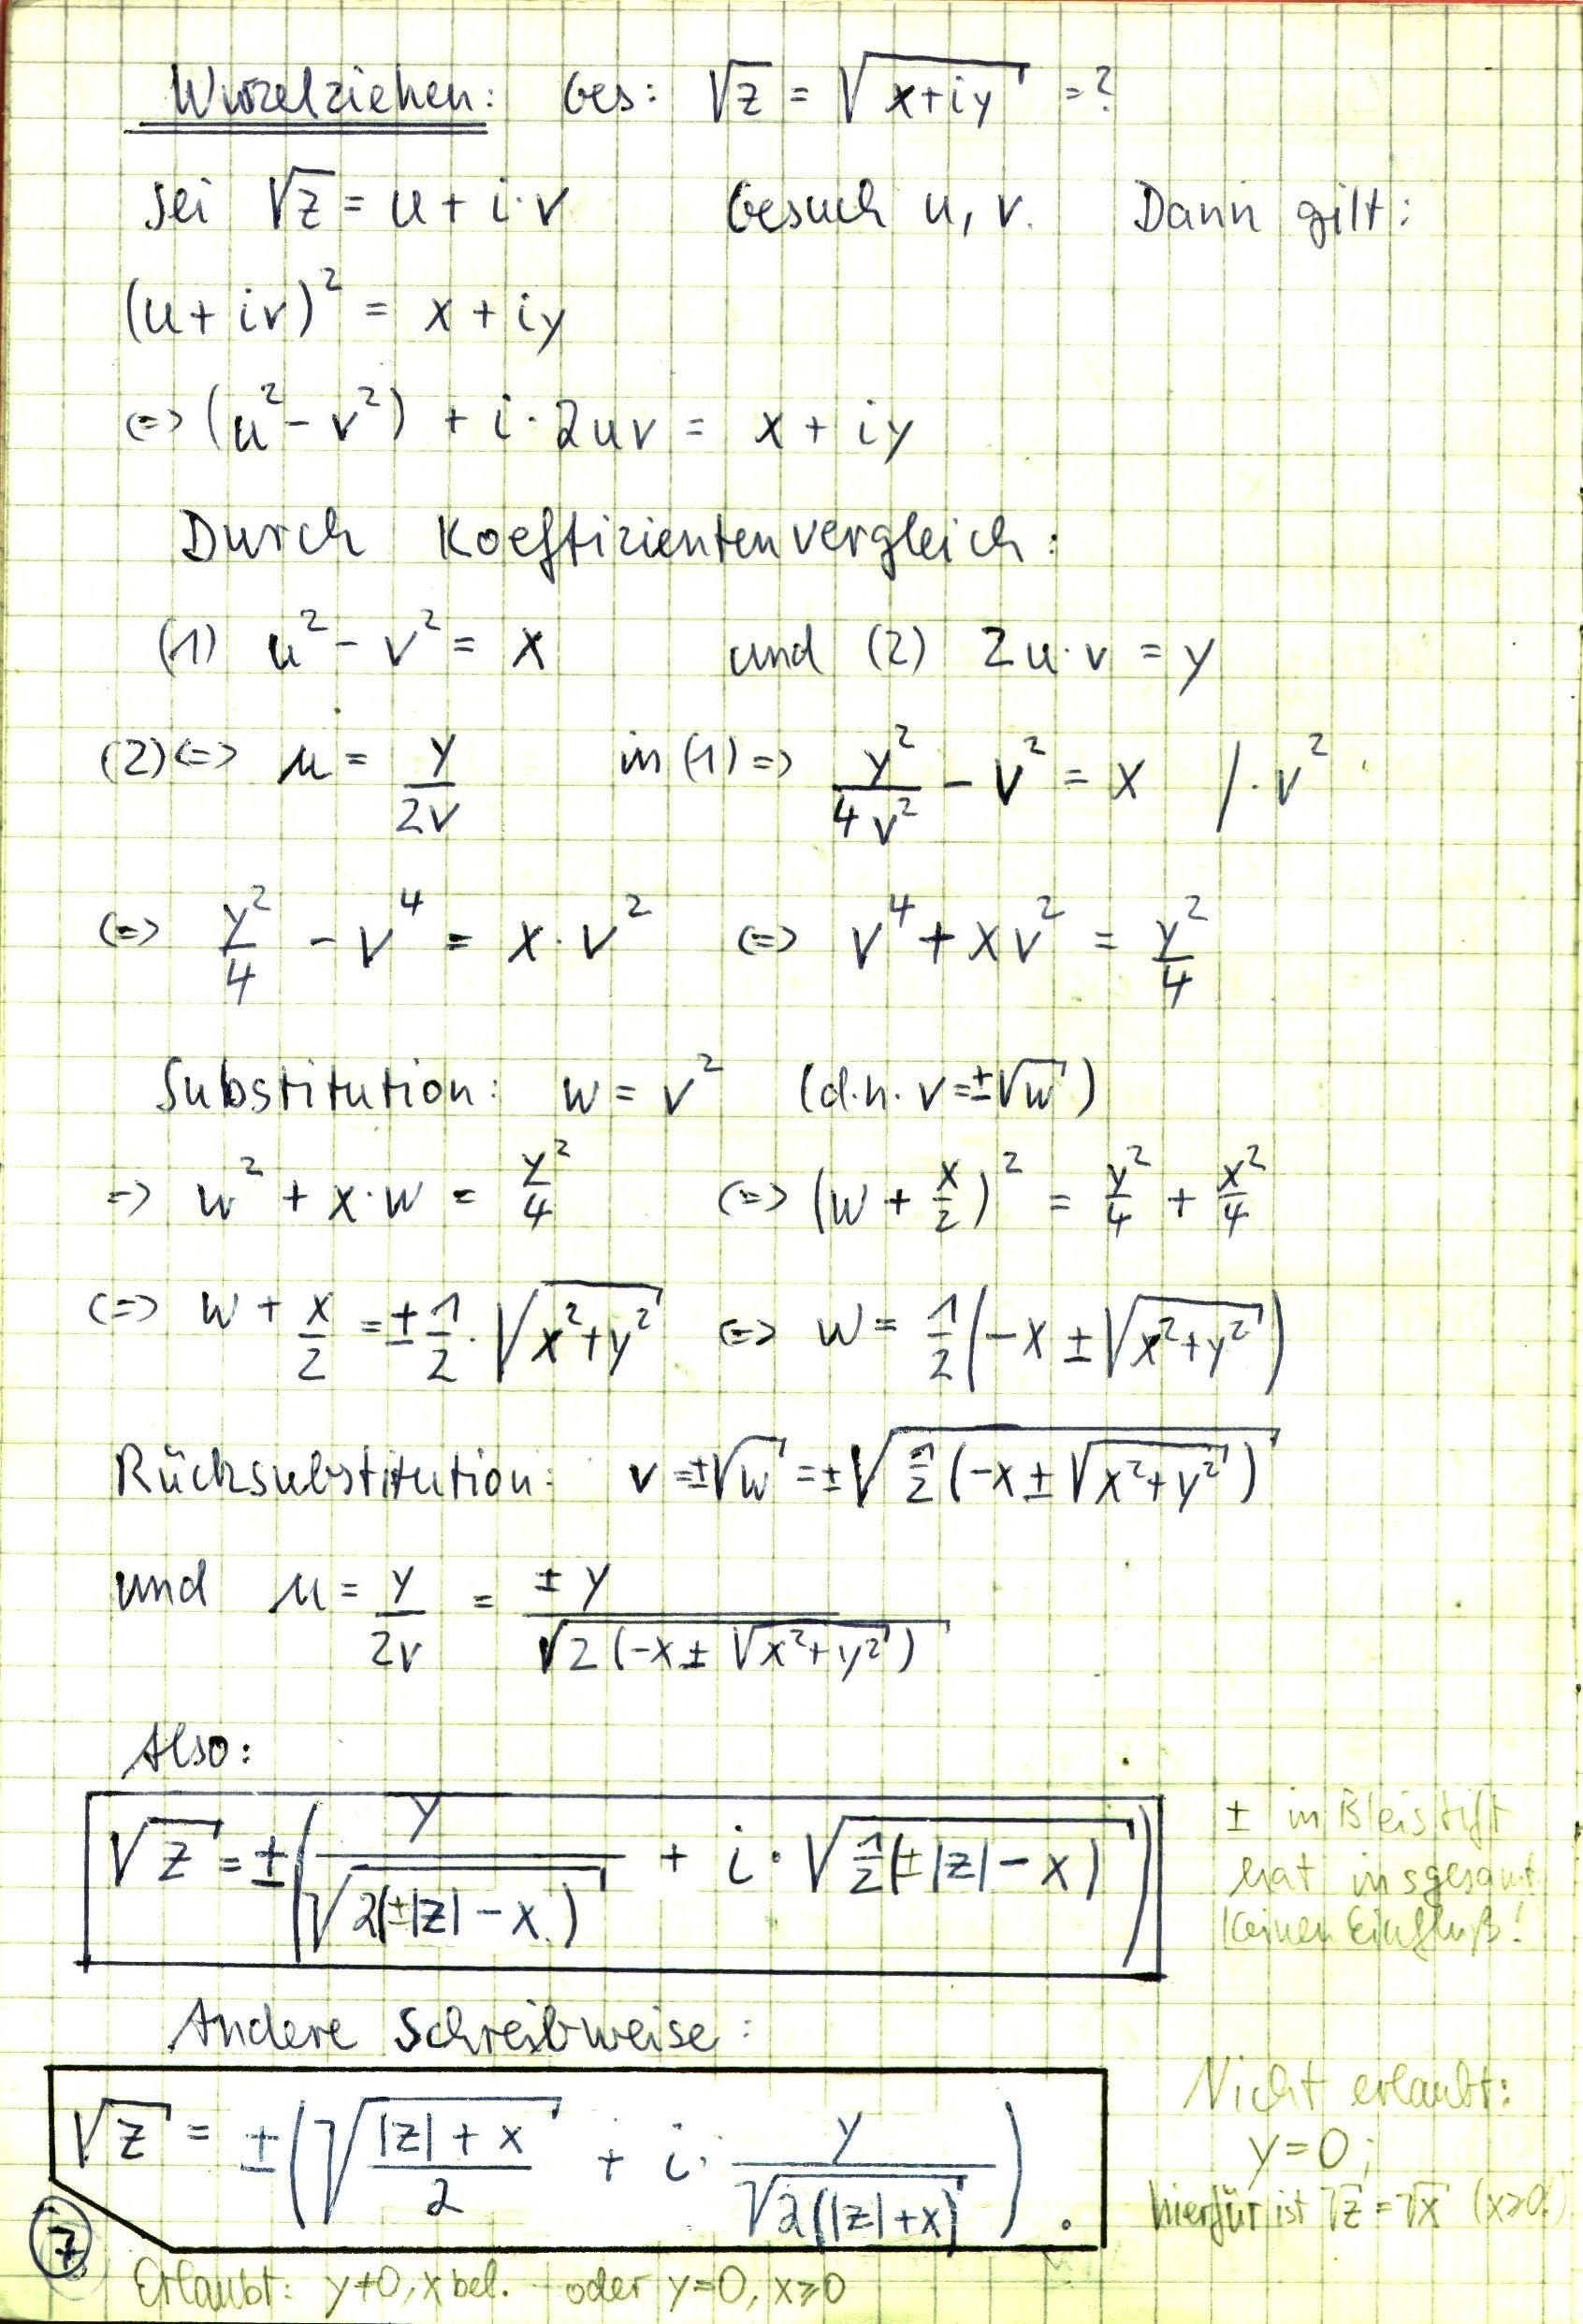 Wurzelziehen: Ges: √z = √(x+iy) = ?
sei √z = u + i·v Gesuch u, v. Dann gilt:
(u + iv)² = x + iy
<=> (u² − v²) + i·2uv = x + iy
Durch Koeffizientenvergleich:
(1) u² − v² = x und (2) 2u·v = y
(2) <=> u = y/2v in (1) => y²/4v² − v² = x /·v²
<=> y²/4 − v⁴ = x·v² <=> v⁴ + xv² = y²/4
Substitution: w = v² (d.h. v = ±√w)
=> w² + x·w = y²/4 <=> (w + x/2)² = y²/4 + x²/4
<=> w + x/2 = ± 1/2 · √(x²+y²) <=> w = 1/2 (−x ± √(x²+y²))
Rücksubstitution: v = ±√w = ±√(1/2 (−x ± √(x²+y²)))
und u = y/2v = ± y/√(2(−x ± √(x²+y²)))
Also:
√z = ±(y/√(2(±|z| − x)) + i·√(1/2(±|z| − x)))
± in Bleistift
hat insgesamt
keinen Einfluß!
Andere Schreibweise:
√z = ±(√((|z| + x)/2) + i· y/√(2(|z|+x))).
Nicht erlaubt:
y = 0;
hierfür ist √z = √x (x≥0)
7
Erlaubt: y≠0, x bel. oder y=0, x≥0